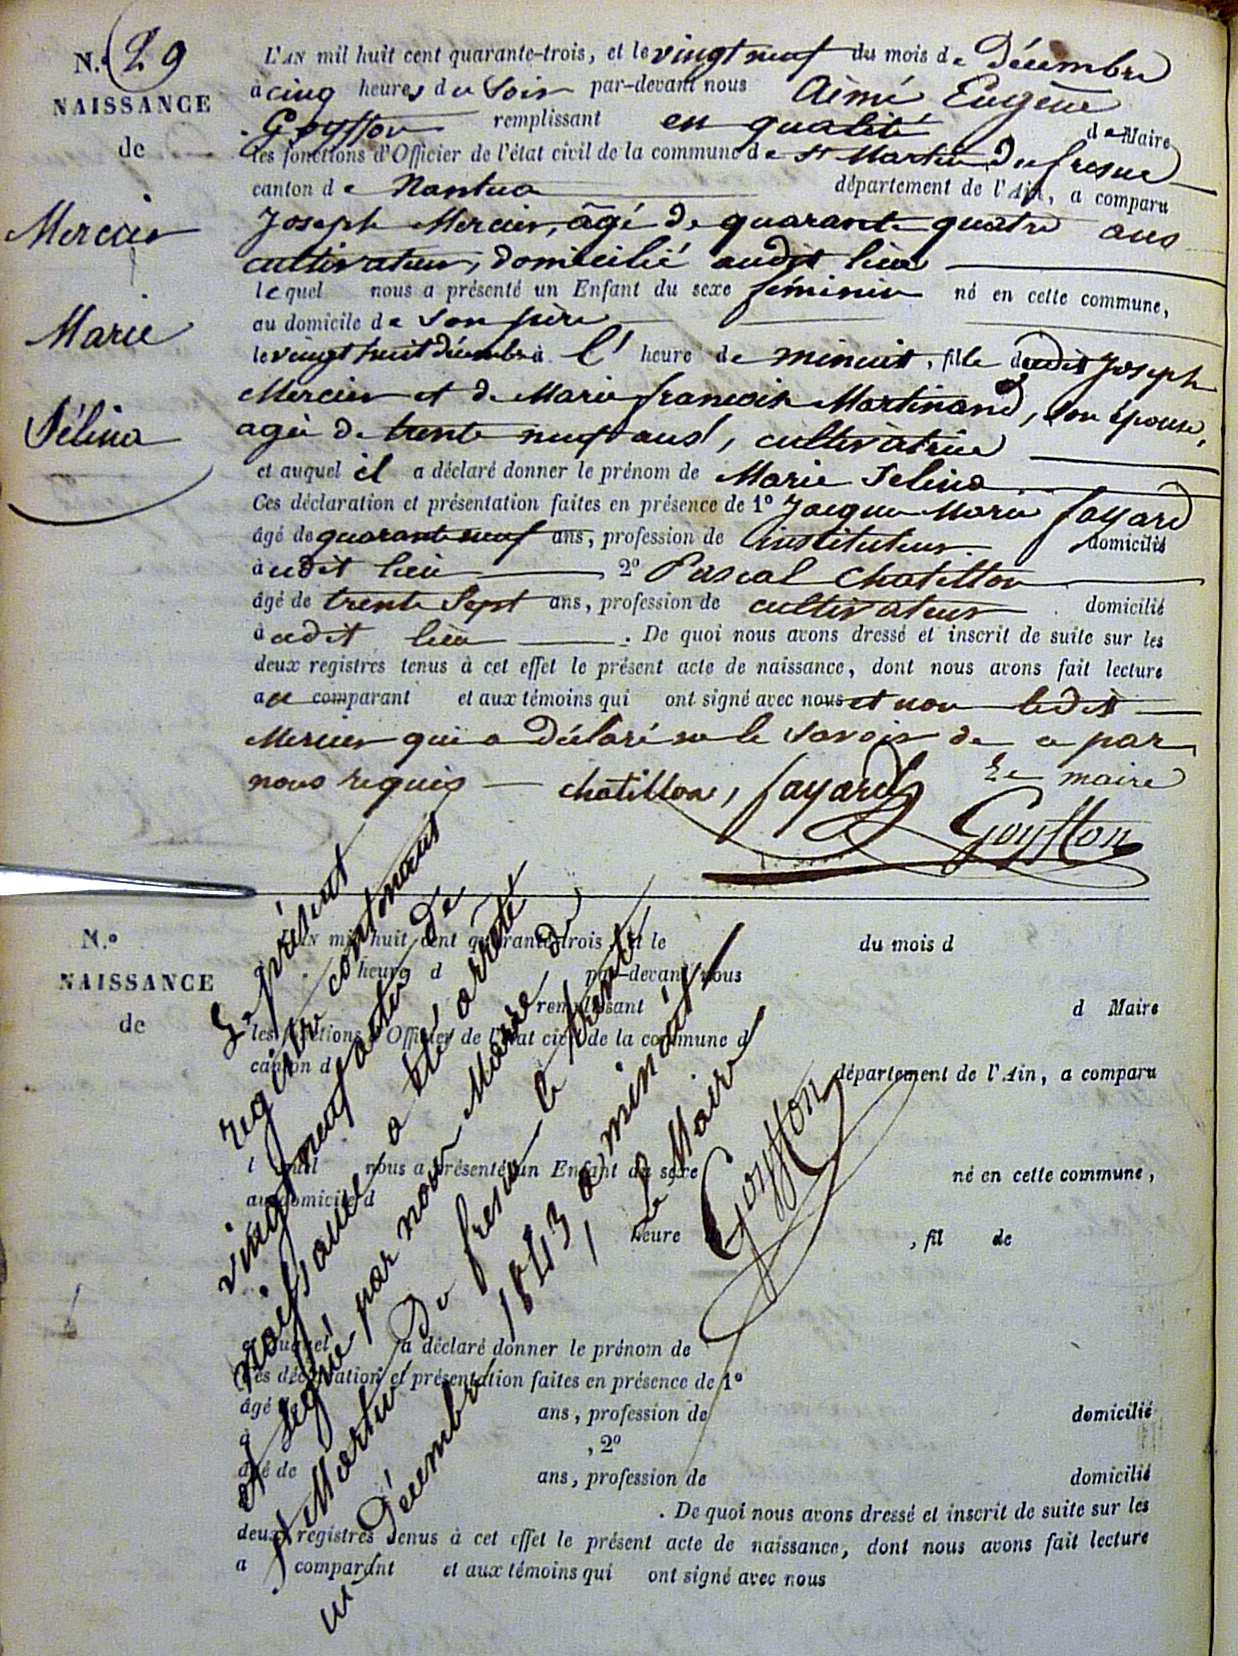 N.° 29
NAISSANCE
de
Mercier
Marie
Sélina
L'AN mil huit cent quarante-trois, et le vingt neuf du mois de Décembre
à cinq heures du Soir par-devant nous Aimé Eugène
Goyffon remplissant en qualité de Maire
les fonctions d'Officier de l'état civil de la commune de St Martin du fresne
canton de Nantua département de l'Ain, a comparu
Joseph Mercier, âgé de quarante quatre ans
cultivateur, domicilié audit lieu
lequel nous a présenté un Enfant du sexe féminin né en cette commune,
au domicile de son père
le vingt huit décembre à l' heure de minuit, fille dudit Joseph
Mercier et de Marie françoise Martinand, son épouse,
agée de trente neuf ans, cultivatrice
et auquel il a déclaré donner le prénom de Marie Selina
Ces déclaration et présentation faites en présence de 1° Jacque Marie fayard
âgé de quarante neuf ans, profession de instituteur domicilié
audit lieu 2° Pascal Chatillon
âgé de trente Sept ans, profession de cultivateur domicilié
à udit lieu. De quoi nous avons dressé et inscrit de suite sur les
deux registres tenus à cet effet le présent acte de naissance, dont nous avons fait lecture
au comparant et aux témoins qui ont signé avec nous et non ledit
Mercier qui a déclaré ne le savoir de ce par
nous requis chatillon, fayard Le maire
Goyffon
Le présent
registre contenant
vingt neuf actes de
naissance a été arrêté
et signé par nous Maire de
St Martin du fresne le trente
un Décembre 1843 à minuit
Le Maire
Goyffon
N.°
NAISSANCE
de
L'AN mil huit cent quarante-trois, et le du mois d
heure d par-devant nous
remplissant d Maire
les fonctions d'Officier de l'état civil de la commune d
canton d département de l'Ain, a comparu
l quel nous a présenté un Enfant du sexe né en cette commune,
au domicile d
heure , fil de
et auquel a déclaré donner le prénom de
Ces déclaration et présentation faites en présence de 1°
âgé de ans, profession de domicilié
à , 2°
âgé de ans, profession de domicilié
. De quoi nous avons dressé et inscrit de suite sur les
deux registres tenus à cet effet le présent acte de naissance, dont nous avons fait lecture
a comparant et aux témoins qui ont signé avec nous